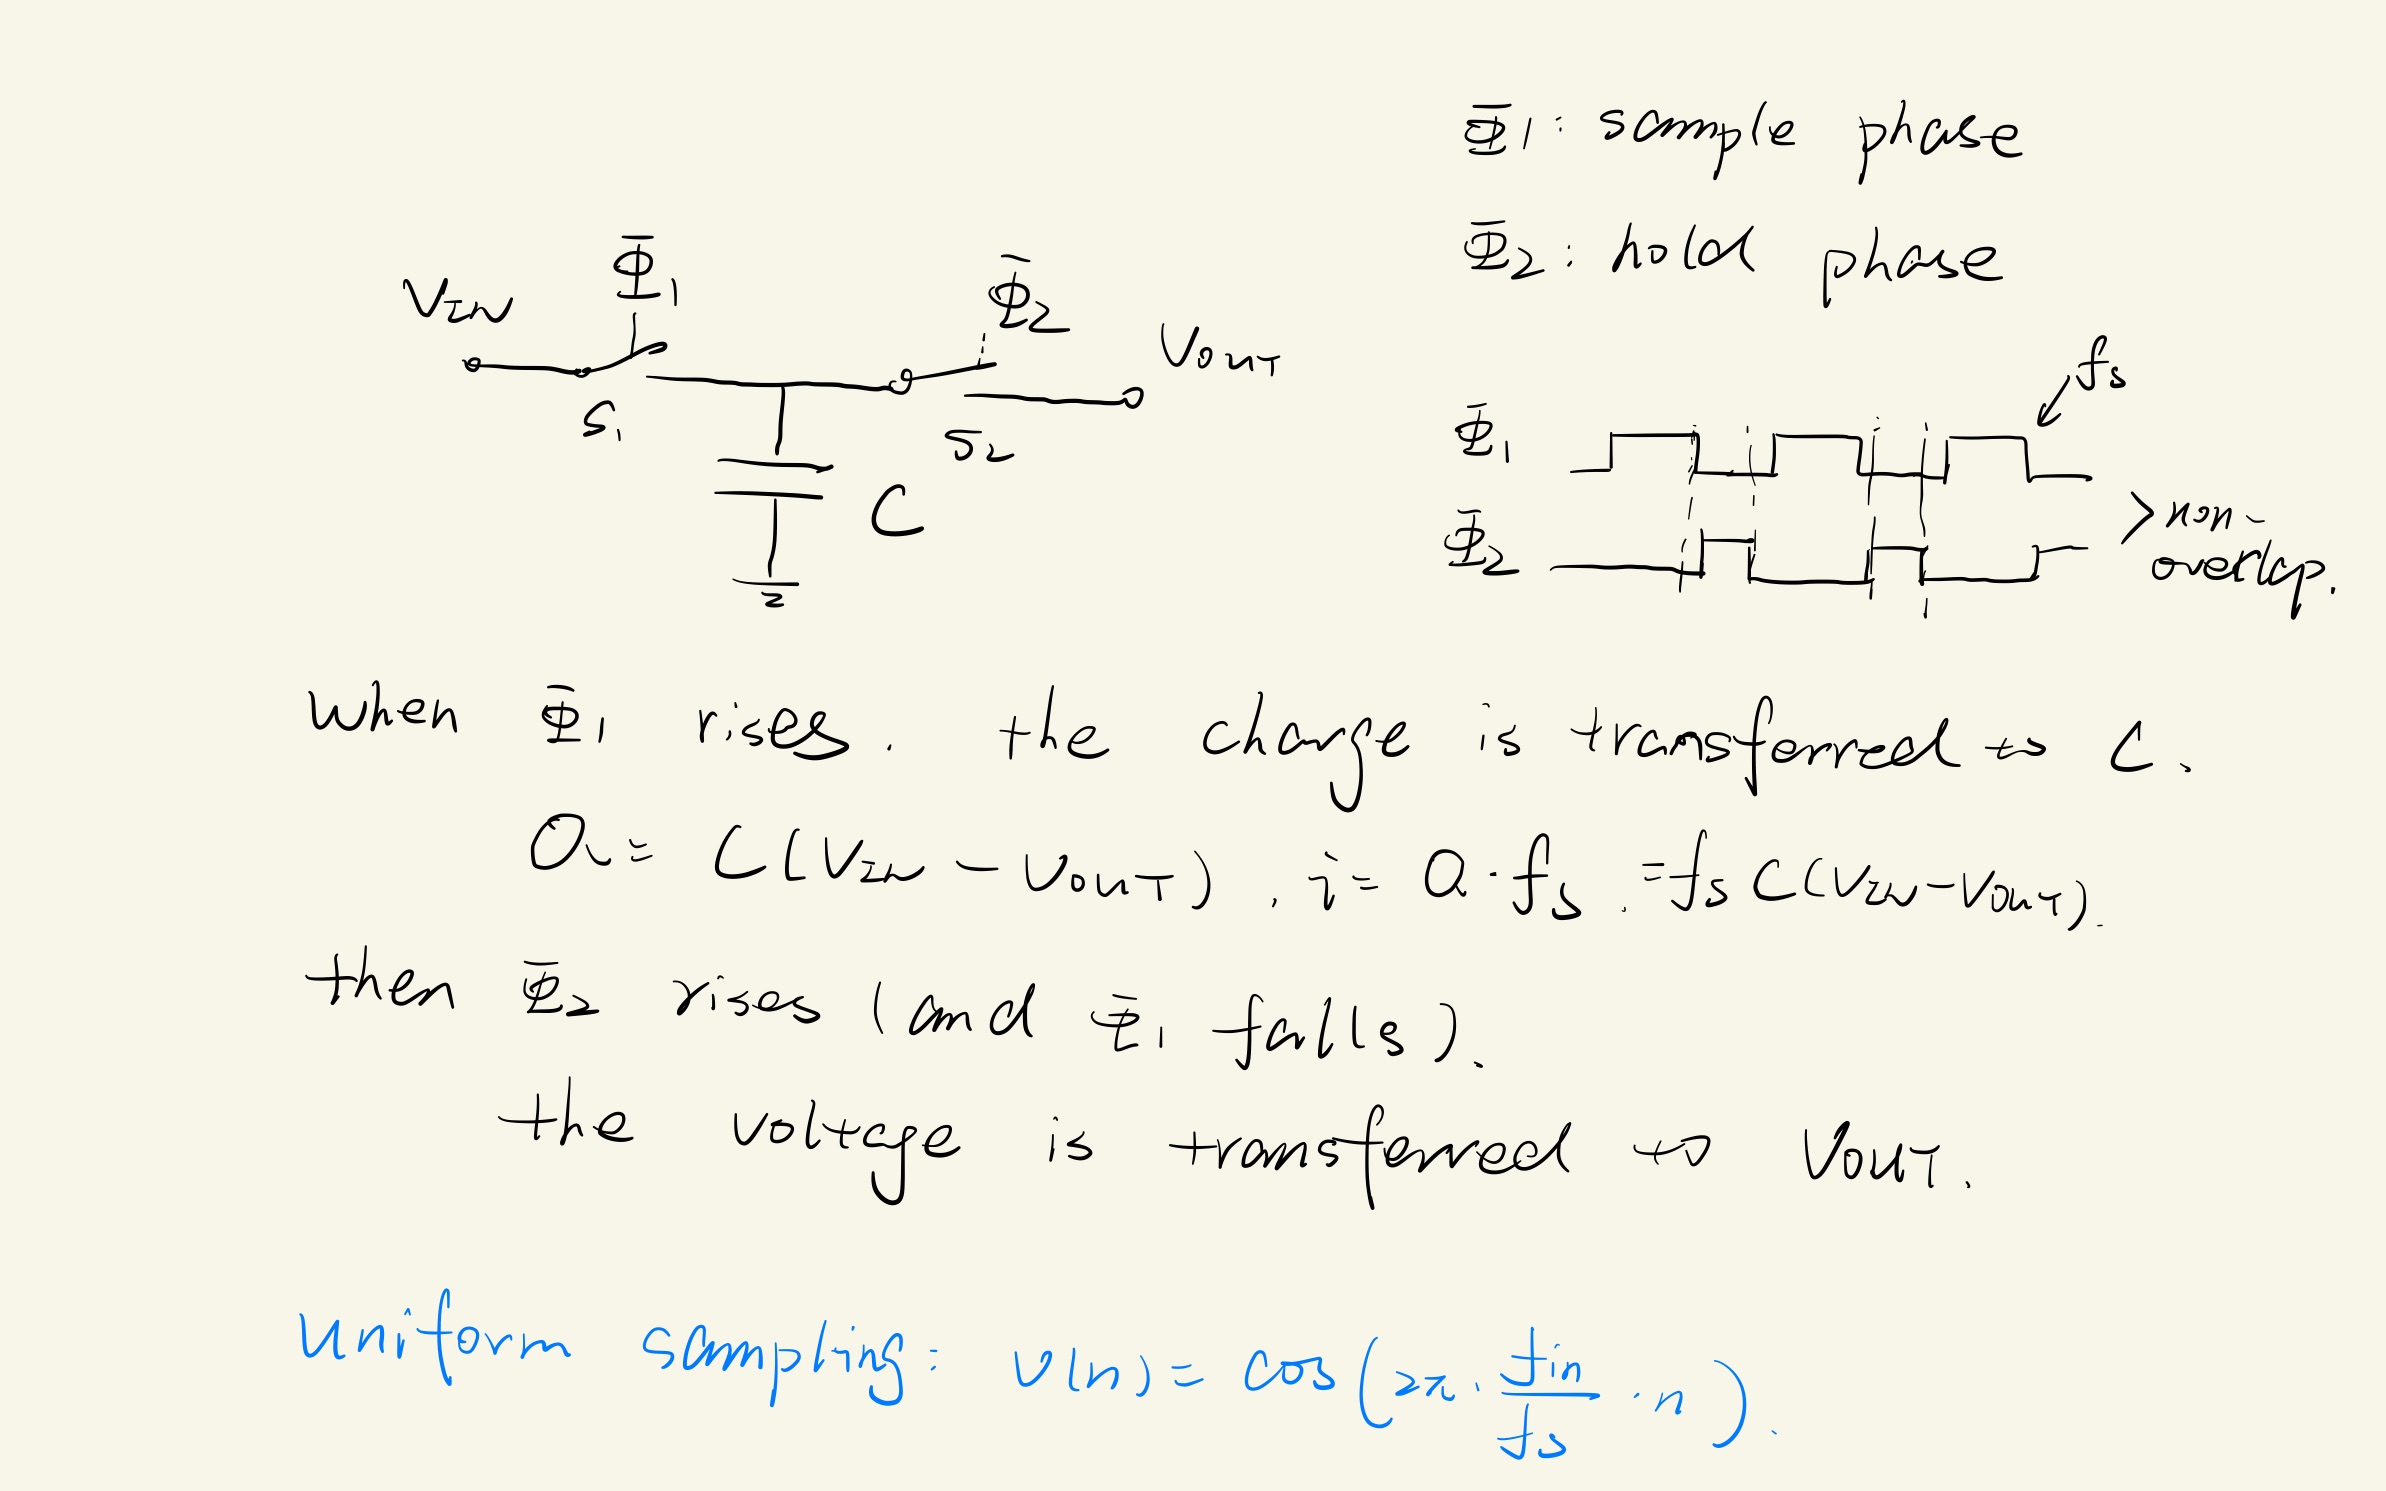 Φ1: sample phase
Φ2: hold phase
VIN
Φ1
Φ2
VOUT
S1
S2
C
fs
Φ1
Φ2
> non-
overlap.
when Φ1 rises. the charge is transferred to C.
Q = C(VIN - VOUT), i = Q·fs. = fs C(VIN - VOUT).
then Φ2 rises (and Φ1 falls).
the voltage is transferred to VOUT.
uniform sampling: v(n) = cos(2π · fin/fs · n).